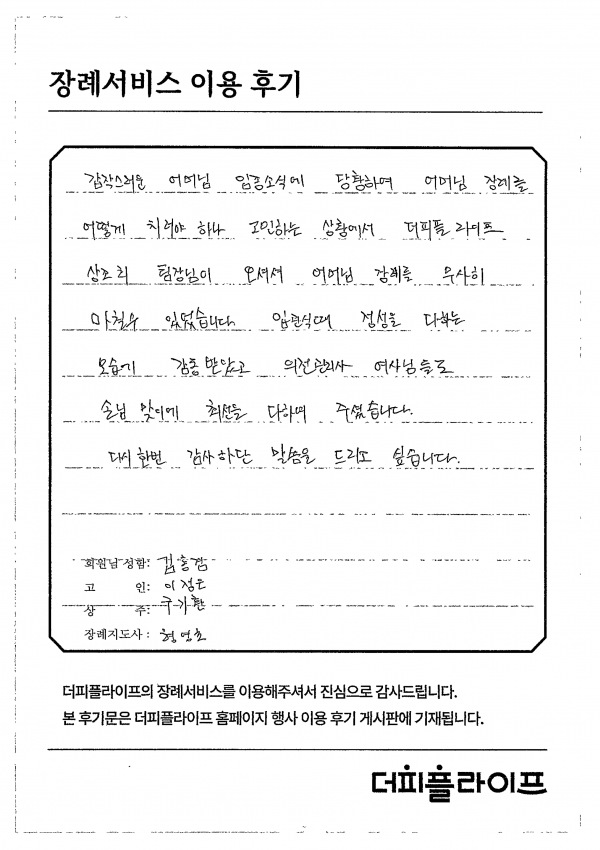 장례서비스 이용 후기
갑작스러운 어머님 임종소식에 당황하여 어머님 장례를
어떻게 치뤄야 하나 고민하는 상황에서 더피플 라이프
상조회 팀장님이 오셔서 어머님 장례를 무사히
마칠수 있었습니다. 입관식때 정성을 다하는
모습에 감동 받았고 의전관리사 여사님들도
손님 맞이에 최선을 다하여 주셨습니다.
다시한번 감사하단 말씀을 드리고 싶습니다.
회원님 성함:
고 인: 이정은
상 주:
장례지도사:
더피플라이프의 장례서비스를 이용해주셔서 진심으로 감사드립니다.
본 후기문은 더피플라이프 홈페이지 행사 이용 후기 게시판에 기재됩니다.
더피플라이프